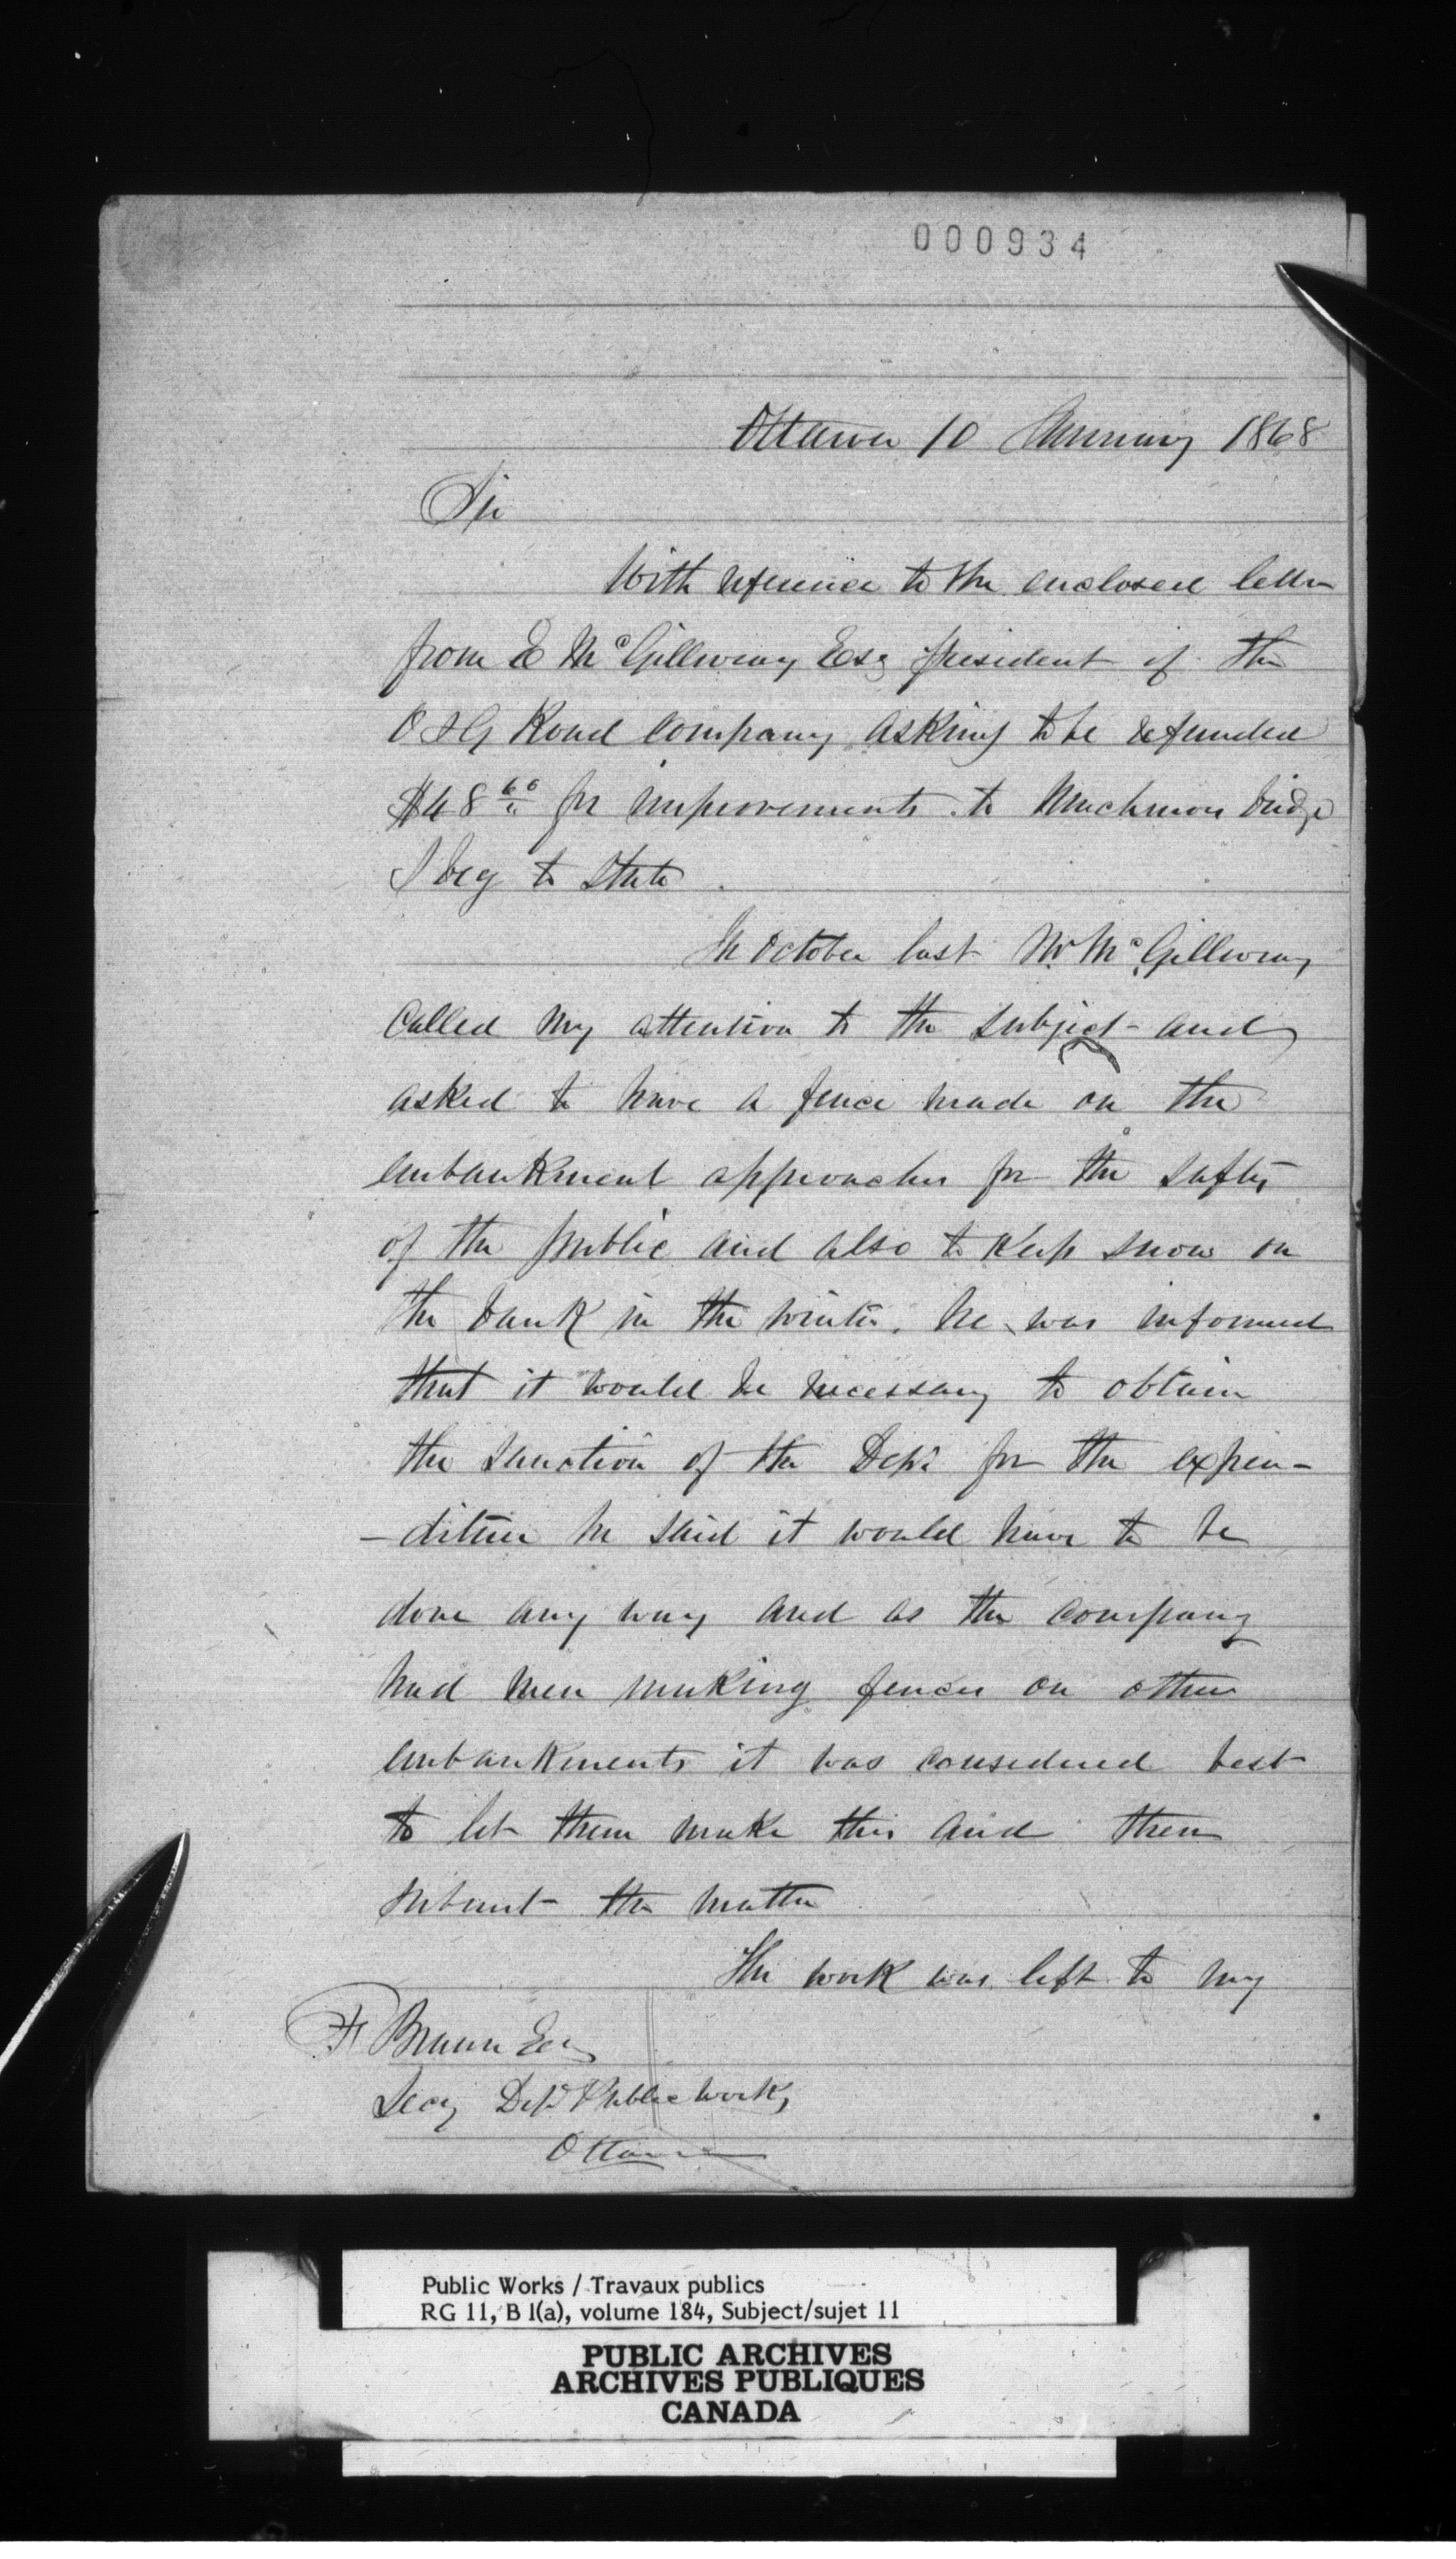 000934
Ottawa 10 January 1868
Sir
With reference to the enclosed letter
from E McGillivray Esq president of the
O & G Road Company asking to be refunded
$48 60 for improvements to Buchmon bridge
I beg to state
In October last Mr McGillivray
called my attention to the subject and
asked to have a fence made on the
embankment approaches for the safty
of the public and also to keep snow on
the bank in the winter. he was informed
that it would be necessary to obtain
the sanction of the Dept for the expen-
-diture he said it would have to be
done any way and as the company
had men making fences on other
embankments it was considered best
to let them make this and then
submit the matter
The work was left to my
F Braun Esq
Secy Dept Public Works
Ottawa
Public Works / Travaux publics
RG 11, B 1(a), volume 184, Subject/sujet 11
PUBLIC ARCHIVES
ARCHIVES PUBLIQUES
CANADA